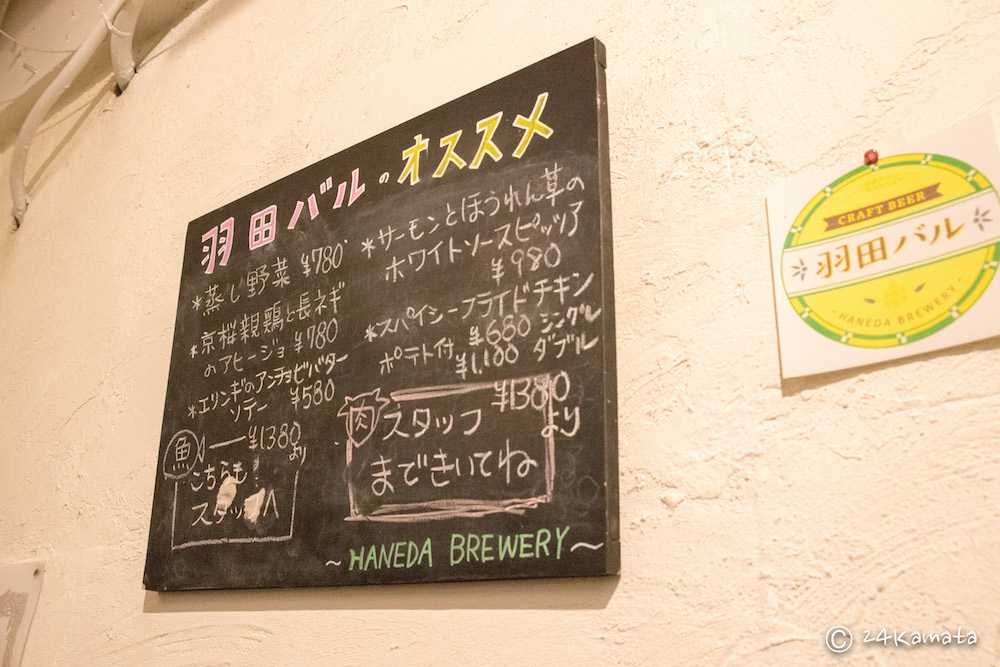 羽田バルのオススメ
*蒸し野菜 ¥780
*京桜親鶏と長ネギ
のアヒージョ ¥780
*エリンギのアンチョビバター
ソテー ¥580
魚 ー ¥1380
より
こちらも!
スタッフへ
*サーモンとほうれん草の
ホワイトソースピッツア
¥980
*スパイシーフライドチキン
ポテト付 ¥680 シングル
¥1,180 ダブル
¥1380
より
肉 スタッフ
まできいてね
~HANEDA BREWERY~
CRAFT BEER
羽田バル
・HANEDA BREWERY・
© 24Kamata